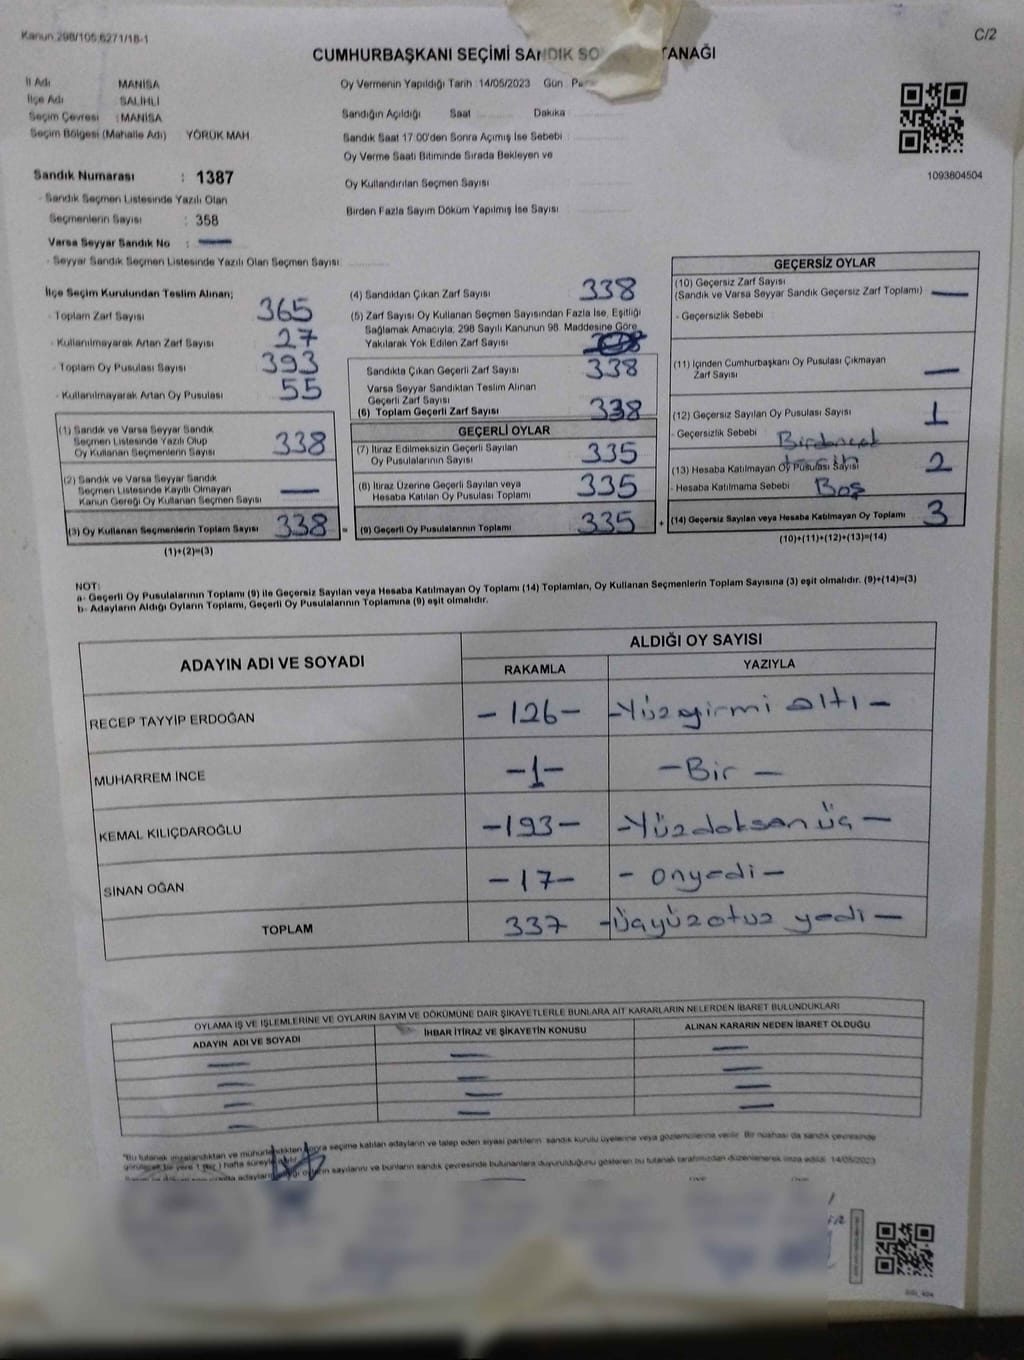 Kanun 298/105,6271/18-1
C/2
CUMHURBAŞKANI SEÇİMİ SANDIK SO TANAĞI
İl Adı MANİSA
İlçe Adı SALİHLİ
Seçim Çevresi : MANİSA
Seçim Bölgesi (Mahalle Adı) YÖRÜK MAH
Sandık Numarası : 1387
- Sandık Seçmen Listesinde Yazılı Olan
Seçmenlerin Sayısı : 358
Varsa Seyyar Sandık No : —
- Seyyar Sandık Seçmen Listesinde Yazılı Olan Seçmen Sayısı
Oy Vermenin Yapıldığı Tarih : 14/05/2023 Gün
Sandığın Açıldığı Saat Dakika
Sandık Saat 17:00'den Sonra Açımış İse Sebebi
Oy Verme Saati Bitiminde Sırada Bekleyen ve
Oy Kullandırılan Seçmen Sayısı
Birden Fazla Sayım Döküm Yapılmış İse Sayısı
1093804504
İlçe Seçim Kurulundan Teslim Alınan;
- Toplam Zarf Sayısı 365
- Kullanılmayarak Artan Zarf Sayısı 27
- Toplam Oy Pusulası Sayısı 393
- Kullanılmayarak Artan Oy Pusulası 55
(1) Sandık ve Varsa Seyyar Sandık
Seçmen Listesinde Yazılı Olup
Oy Kullanan Seçmenlerin Sayısı 338
(2) Sandık ve Varsa Seyyar Sandık
Seçmen Listesinde Kayıtlı Olmayan
Kanun Gereği Oy Kullanan Seçmen Sayısı —
(3) Oy Kullanan Seçmenlerin Toplam Sayısı 338 =
(1)+(2)=(3)
(4) Sandıktan Çıkan Zarf Sayısı 338
(5) Zarf Sayısı Oy Kullanan Seçmen Sayısından Fazla İse, Eşitliği
Sağlamak Amacıyla, 298 Sayılı Kanunun 98. Maddesine Göre
Yakılarak Yok Edilen Zarf Sayısı
Sandıkta Çıkan Geçerli Zarf Sayısı 338
Varsa Seyyar Sandıktan Teslim Alınan
Geçerli Zarf Sayısı
(6) Toplam Geçerli Zarf Sayısı 338
GEÇERLİ OYLAR
(7) İtiraz Edilmeksizin Geçerli Sayılan
Oy Pusulalarının Sayısı 335
(8) İtiraz Üzerine Geçerli Sayılan veya
Hesaba Katılan Oy Pusulası Toplamı 335
(9) Geçerli Oy Pusulalarının Toplamı 335 +
GEÇERSİZ OYLAR
(10) Geçersiz Zarf Sayısı
(Sandık ve Varsa Seyyar Sandık Geçersiz Zarf Toplamı) —
- Geçersizlik Sebebi
(11) İçinden Cumhurbaşkanı Oy Pusulası Çıkmayan
Zarf Sayısı —
(12) Geçersiz Sayılan Oy Pusulası Sayısı 1
- Geçersizlik Sebebi
(13) Hesaba Katılmayan Oy Pusulası Sayısı 2
- Hesaba Katılmama Sebebi Boş
(14) Geçersiz Sayılan veya Hesaba Katılmayan Oy Toplamı 3
(10)+(11)+(12)+(13)=(14)
NOT:
a- Geçerli Oy Pusulalarının Toplamı (9) ile Geçersiz Sayılan veya Hesaba Katılmayan Oy Toplamı (14) Toplamları, Oy Kullanan Seçmenlerin Toplam Sayısına (3) eşit olmalıdır. (9)+(14)=(3)
b- Adayların Aldığı Oyların Toplamı, Geçerli Oy Pusulalarının Toplamına (9) eşit olmalıdır.
ADAYIN ADI VE SOYADI
ALDIĞI OY SAYISI
RAKAMLA YAZIYLA
RECEP TAYYİP ERDOĞAN – 126 – – Yüzyirmi altı –
MUHARREM İNCE – 1 – – Bir –
KEMAL KILIÇDAROĞLU – 193 – – Yüzdoksan üç –
SİNAN OĞAN – 17 – – onyedi –
TOPLAM 337 – üçyüzotuz yedi –
OYLAMA İŞ VE İŞLEMLERİNE VE OYLARIN SAYIM VE DÖKÜMÜNE DAİR ŞİKAYETLERLE BUNLARA AİT KARARLARIN NELERDEN İBARET BULUNDUKLARI
ADAYIN ADI VE SOYADI İHBAR İTİRAZ VE ŞİKAYETİN KONUSU ALINAN KARARIN NEDEN İBARET OLDUĞU
"Bu tutanak imzalandıktan ve mühürlendikten sonra seçime katılan adayların ve talep eden siyasi partilerin sandık kurulu üyelerine veya gözlemcilerine verilir. Bir nüshası da sandık çevresinde
görülecek bir yere 1 (Bir ) hafta süreyle
oyların sayılarını ve bunların sandık çevresinde bulunanlara duyurulduğunu gösteren bu tutanak tarafımızdan düzenlenerek imza edildi. 14/05/2023